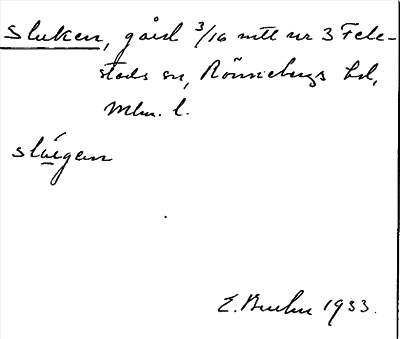 Sluken, gård 3/16 mtl nr 3 Fele-
stads sn, Rönnebergs hd,
Mlm. l.
slúigen
E. Bruhn 1933.